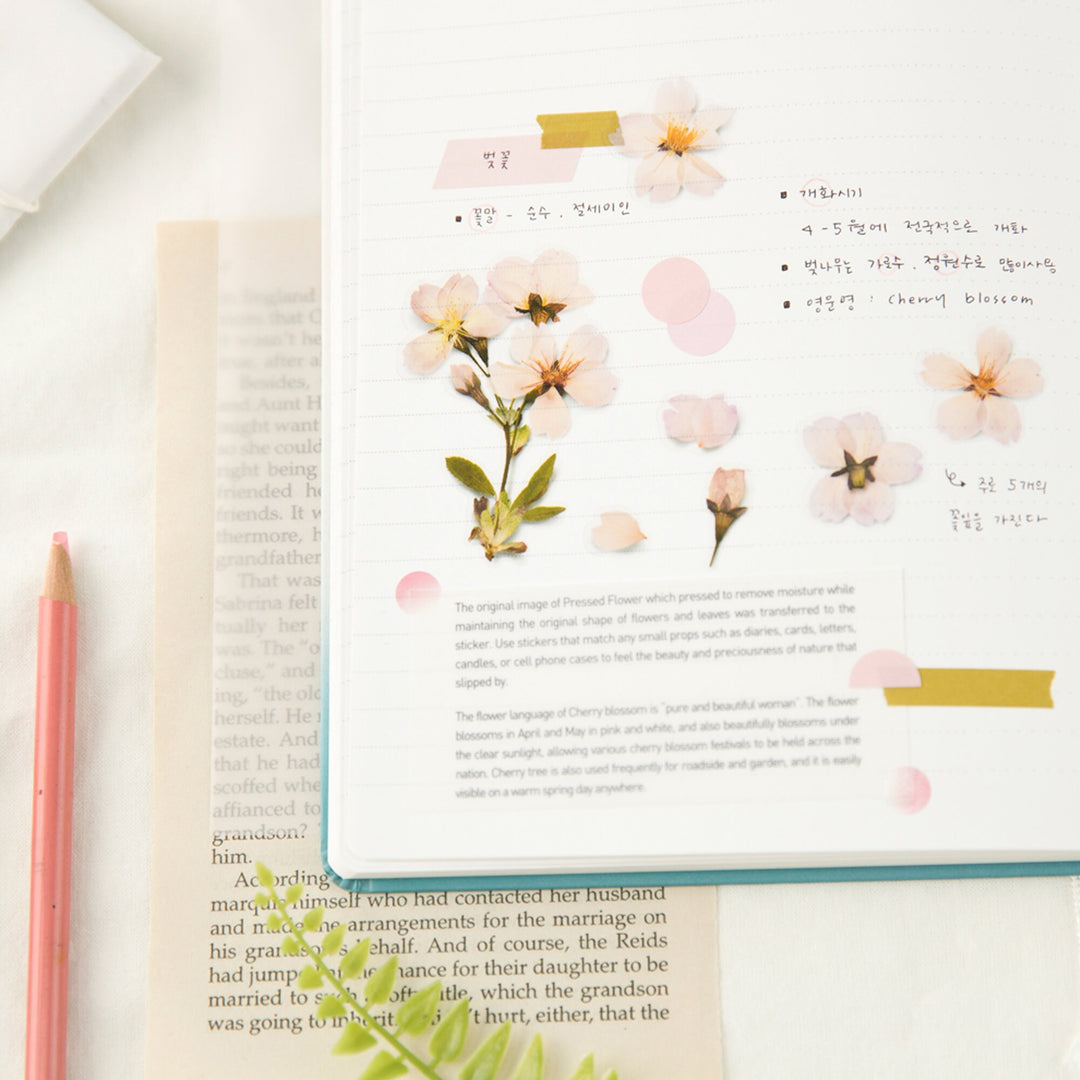 벚꽃
꽃말 - 순수. 절세미인
개화시기
4-5월에 전국적으로 개화
벚나무는 가로수. 정원수로 많이사용
영문명 : cherry blossom
주로 5개의
꽃잎을 가진다
The original image of Pressed Flower which pressed to remove moisture while
maintaining the original shape of flowers and leaves was transferred to the
sticker. Use stickers that match any small props such as diaries, cards, letters,
candles, or cell phone cases to feel the beauty and preciousness of nature that
slipped by.
The flower language of Cherry blossom is "pure and beautiful woman". The flower
blossoms in April and May in pink and white, and also beautifully blossoms under
the clear sunlight, allowing various cherry blossom festivals to be held across the
nation. Cherry tree is also used frequently for roadside and garden, and it is easily
visible on a warm spring day anywhere.
England
that
wasn't he
true, after
Besides,
and Aunt H
want
so she could
right being
friended he
friends. It w
thermore, h
grandfather
That was
Sabrina felt
tually her
was. The "o
cluse," and
ing, "the old
herself. He
estate. And
that he had
scoffed whe
affianced to
grandson?
him.
According
marquis himself who had contacted her husband
and made the arrangements for the marriage on
his grandson's behalf. And of course, the Reids
had jumped chance for their daughter to be
married to such lofty title, which the grandson
was going to inherit. didn't hurt, either, that the